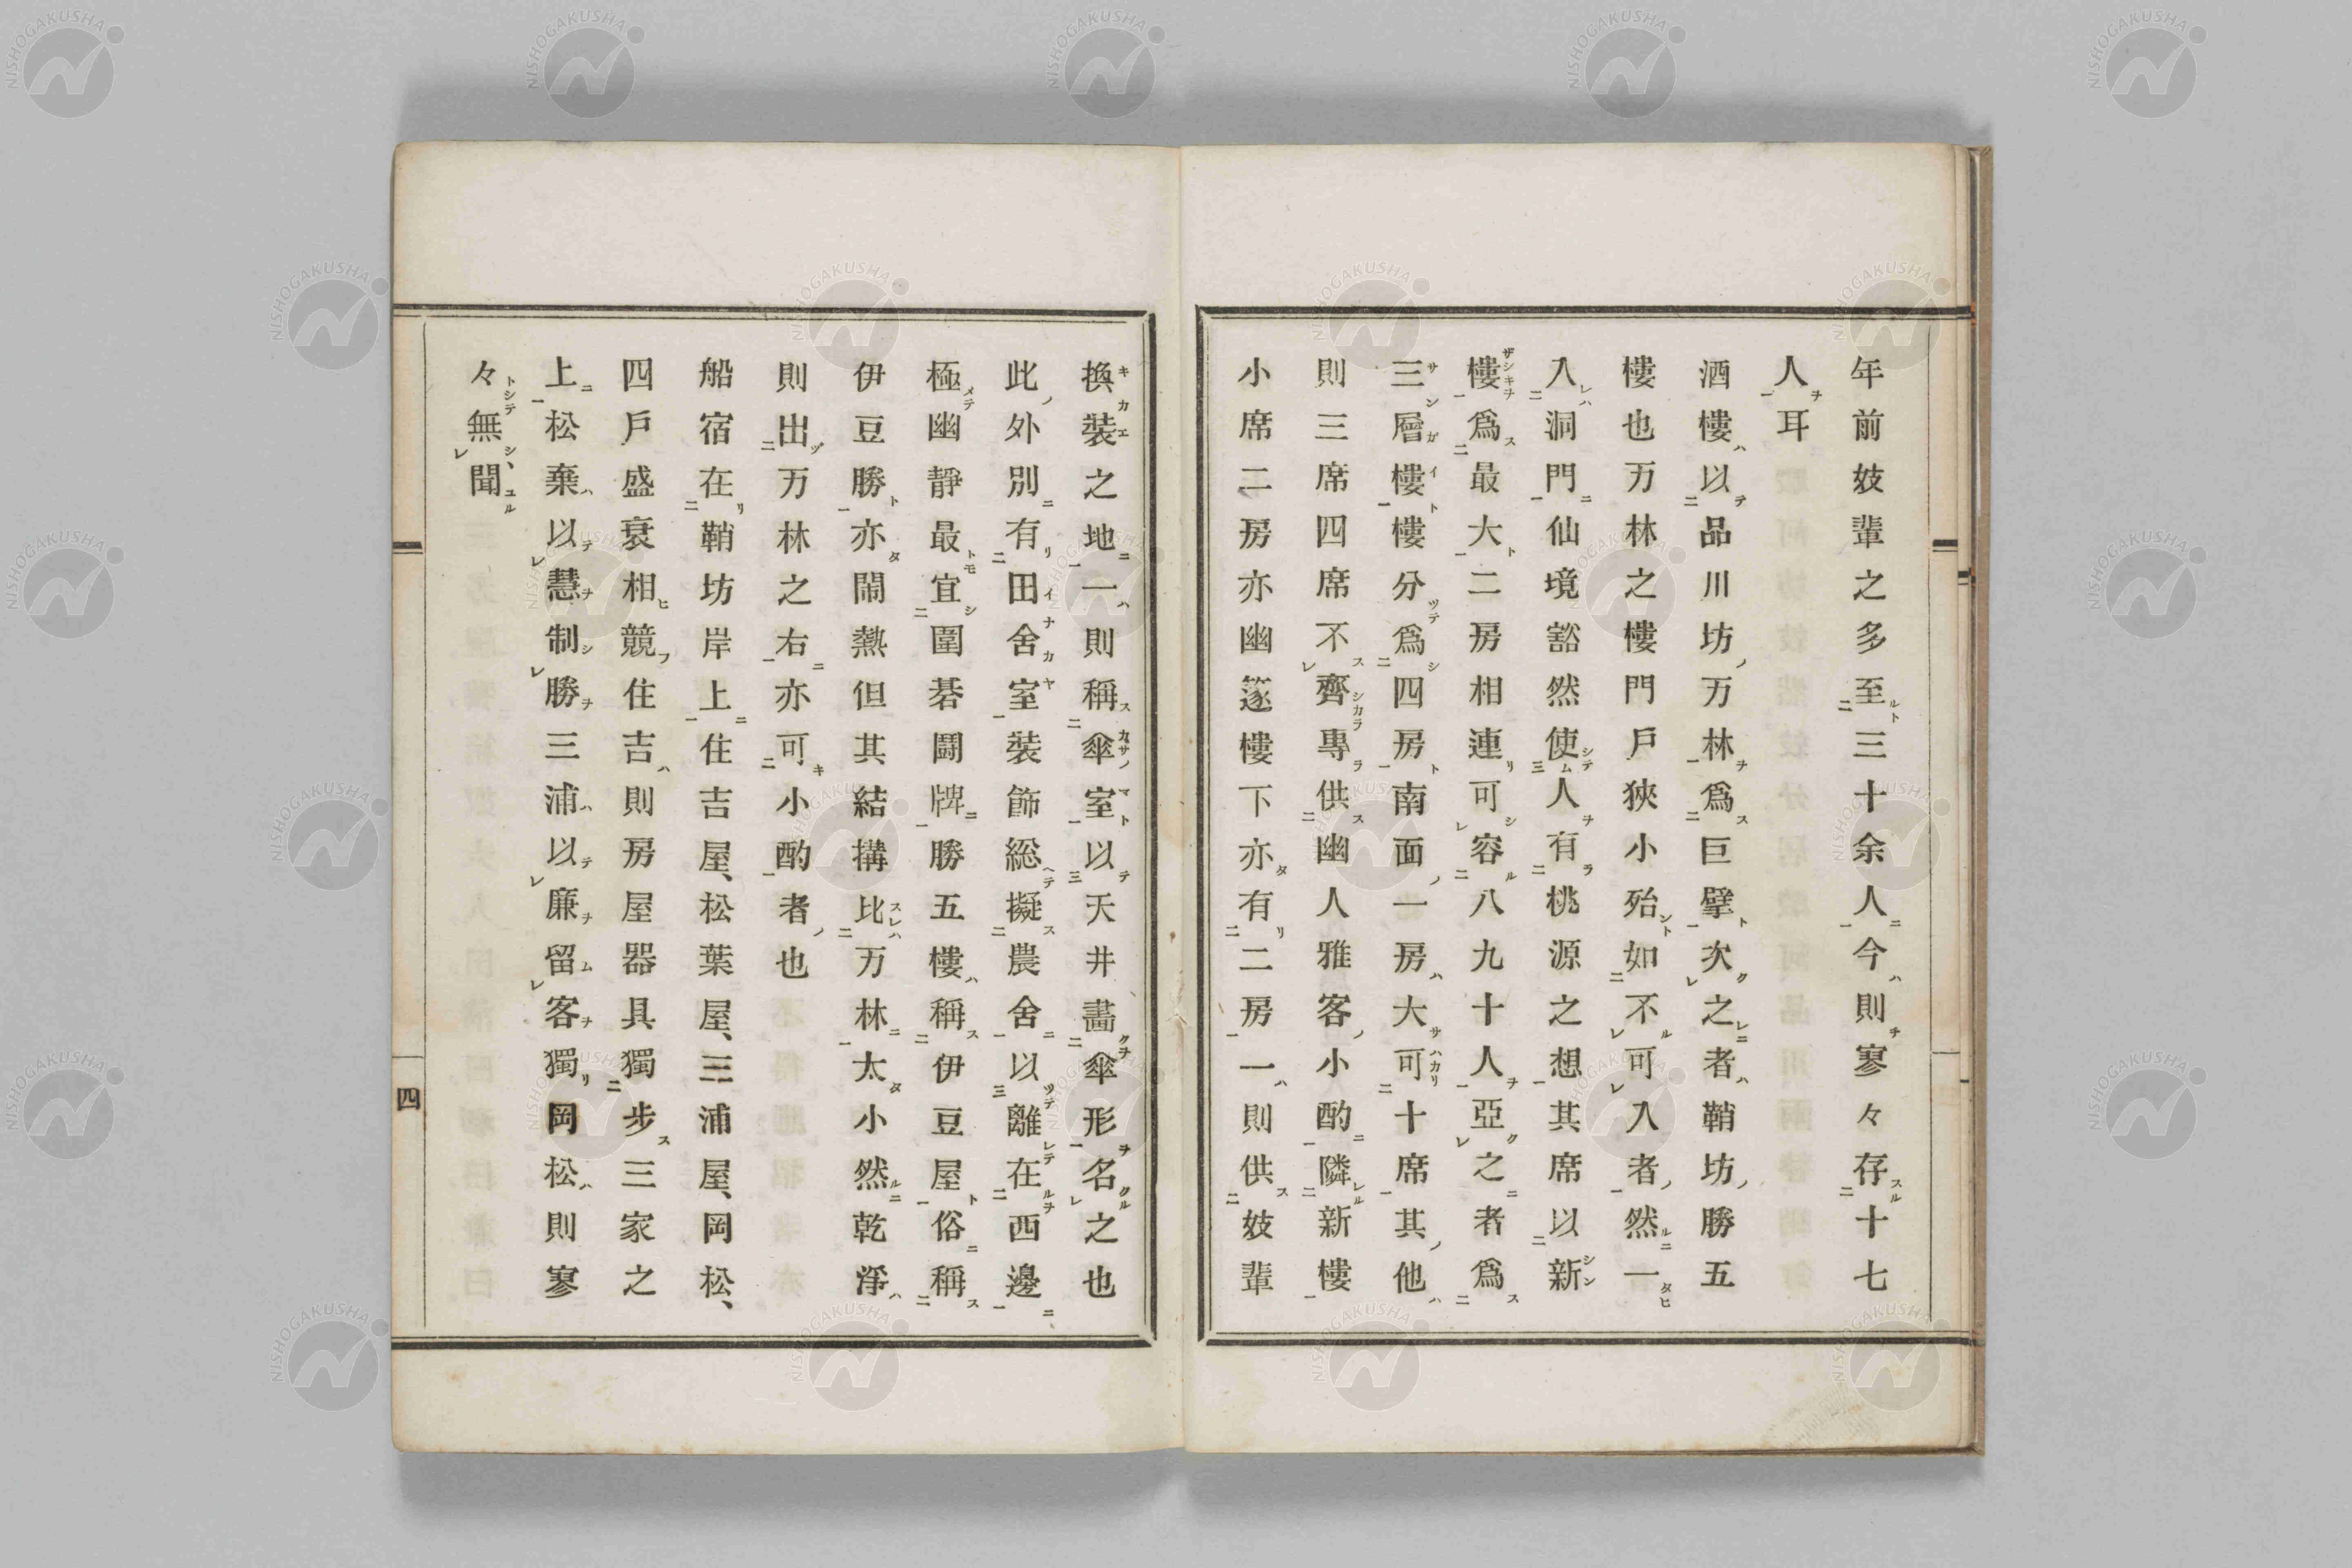 年前妓輩之多至三十余人今則寥々存十七
人耳
酒樓以品川坊万林爲巨擘次之者鞘坊勝五
樓也万林之樓門戶狹小殆如不可入者然一
入洞門仙境豁然使人有桃源之想其席以新
樓爲最大二房相連可容八九十人亞之者爲
三層樓樓分爲四房南面一房大可十席其他
則三席四席不齊專供幽人雅客小酌隣新樓
小席二房亦幽篷樓下亦有二房一則供妓輩
換裝之地一則稱傘室以天井畵傘形名之也
此外別有田舍室裝飾総擬農舍以離在西邊
極幽靜最宜圍碁鬪牌勝五樓稱伊豆屋俗稱
伊豆勝亦鬧熱但其結搆比万林太小然乾淨
則出万林之右亦可小酌者也
船宿在鞘坊岸上住吉屋、松葉屋、三浦屋、岡松、
四戶盛衰相競住吉則房屋器具獨步三家之
上松棄以慧制勝三浦以廉留客獨岡松則寥
々無聞
四
NISHOGAKUSHA